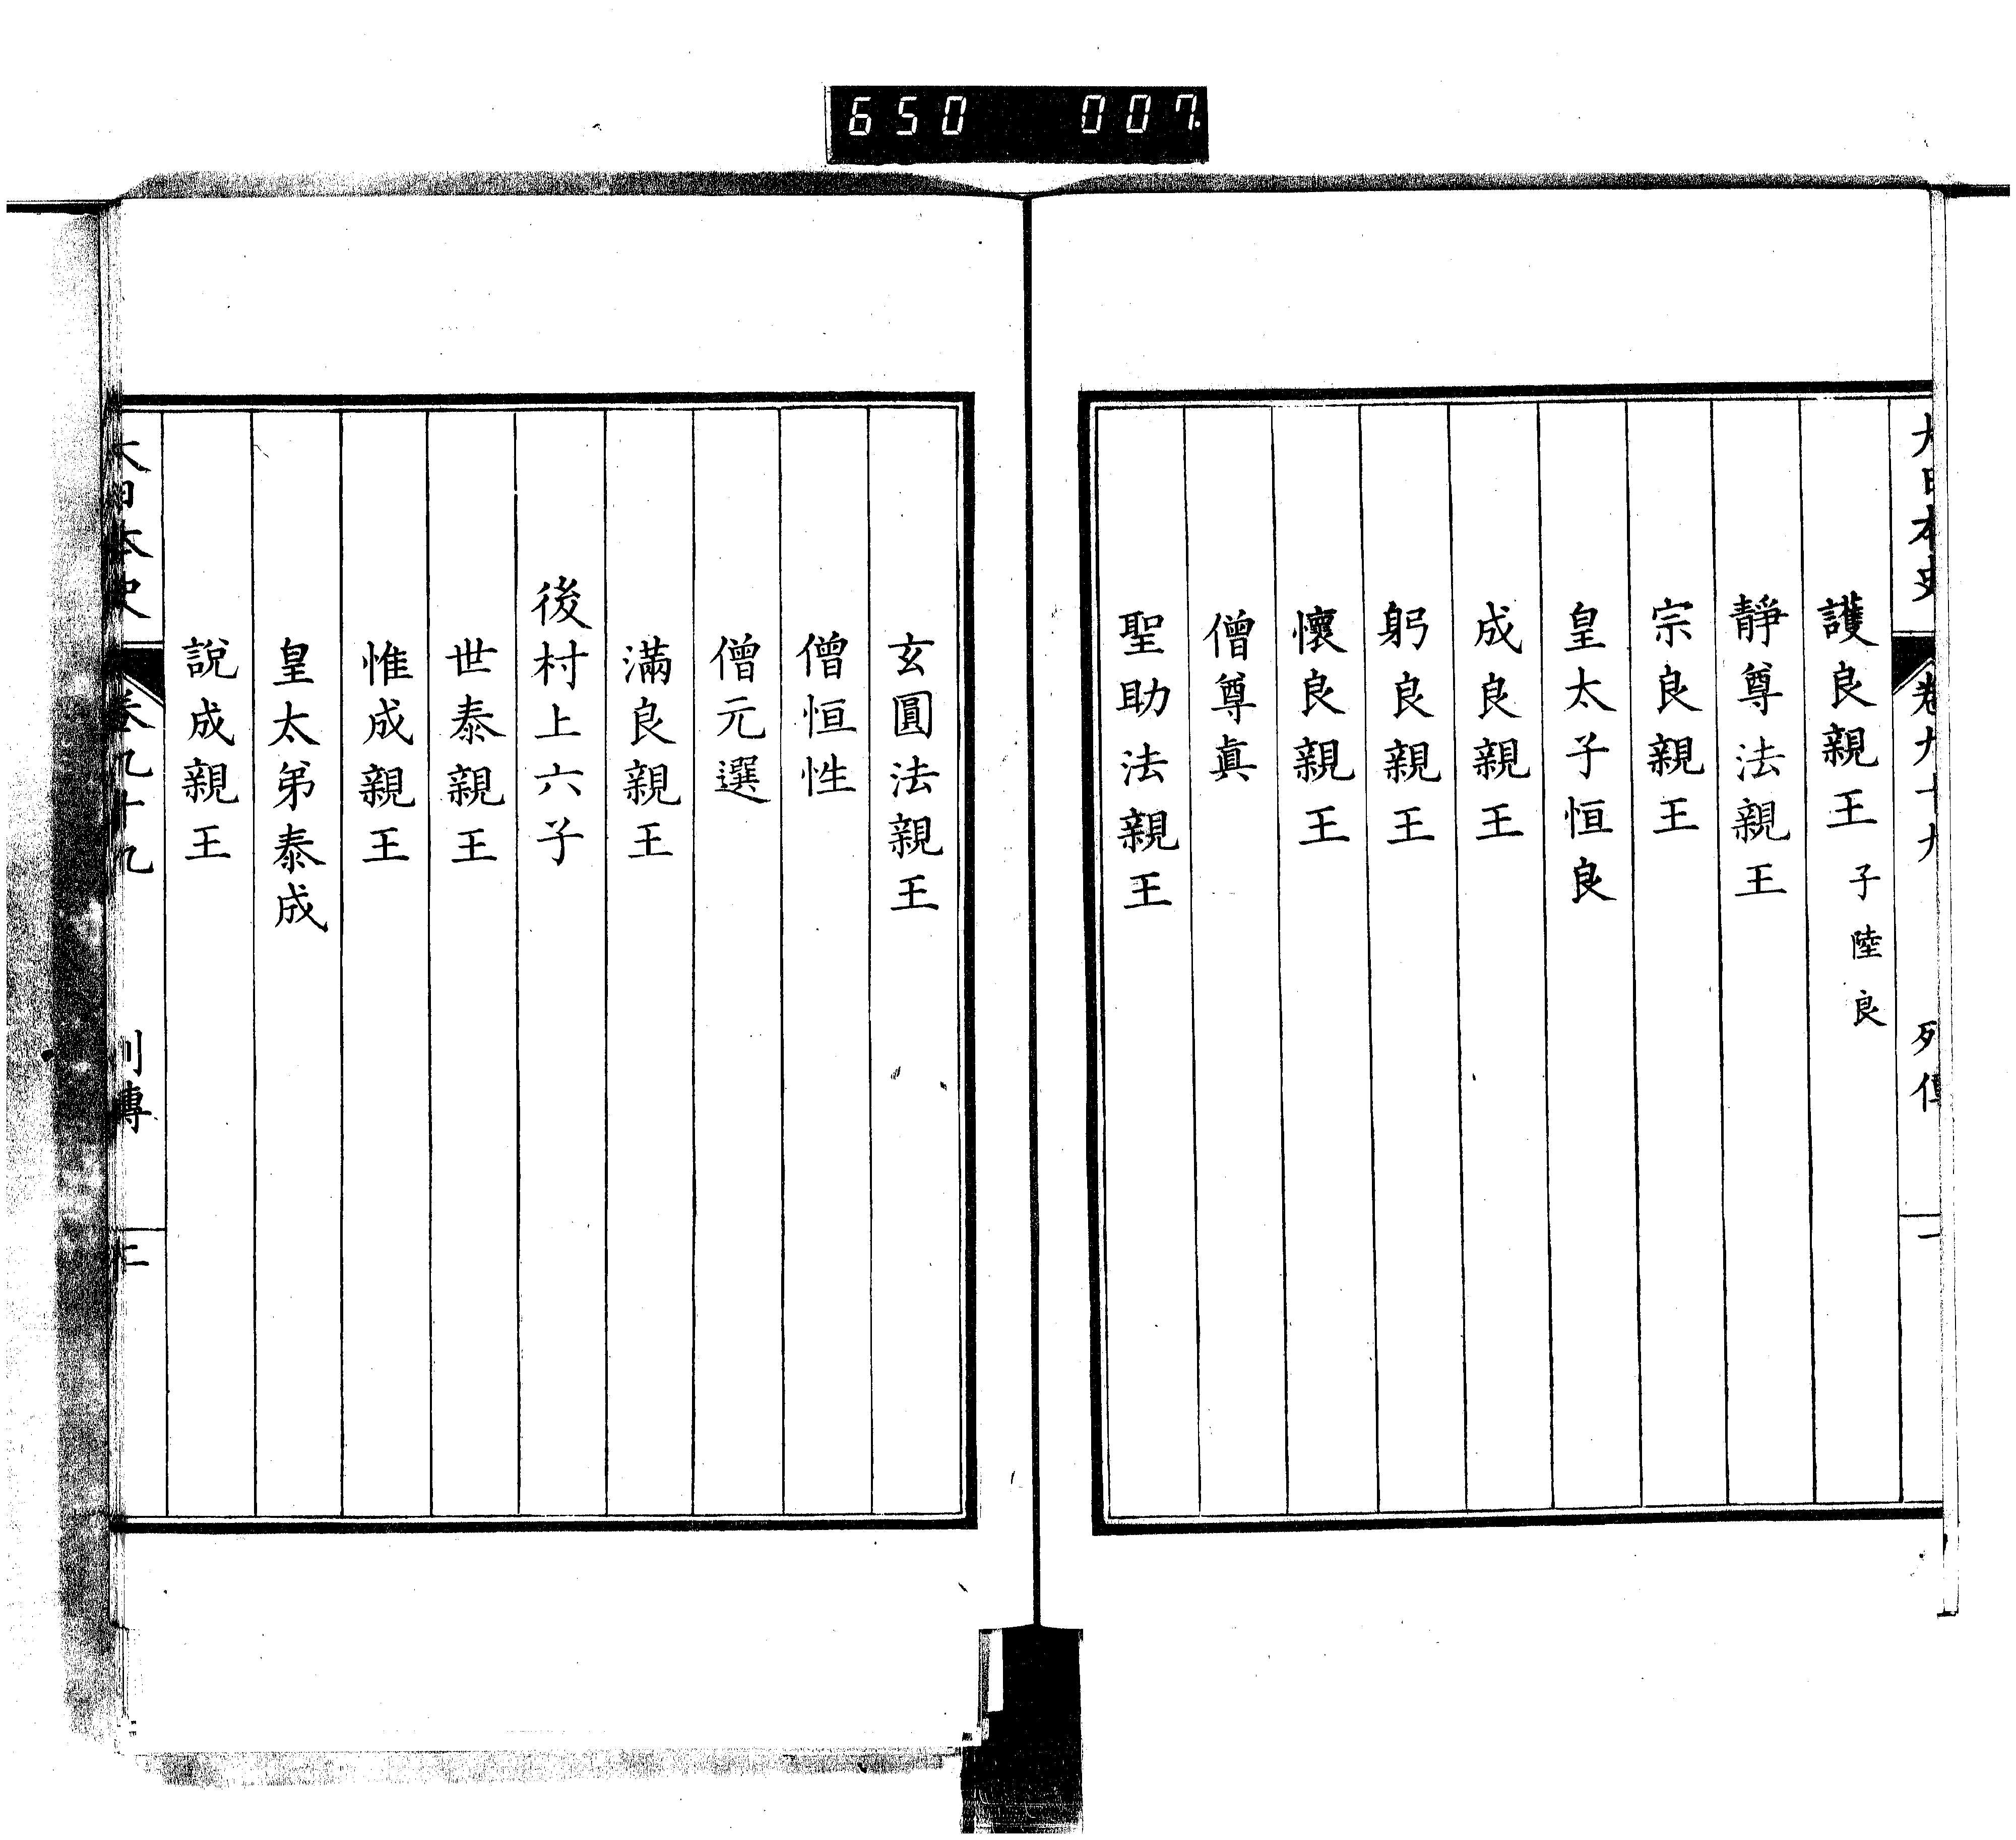 650 007
大日本史 卷九十九 列傳 一
護良親王 子陸良
靜尊法親王
宗良親王
皇太子恒良
成良親王
躬良親王
懷良親王
僧尊眞
聖助法親王
玄圓法親王
僧恒性
僧元選
滿良親王
後村上六子
世泰親王
惟成親王
皇太弟泰成
說成親王
大日本史 卷九十九 列傳 二